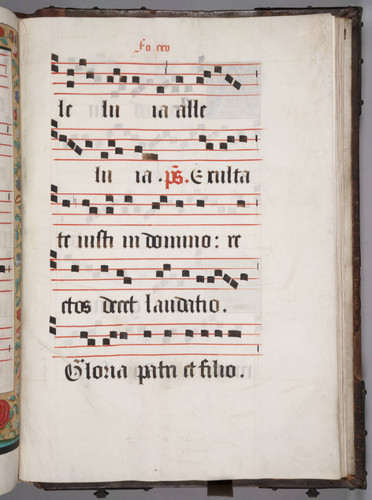 Fo. xxv
le lu ia alle
lu ia . ps̄. Exulta
te iusti in domino: re
ctos decet laudatio.
Gloria patri et filio.